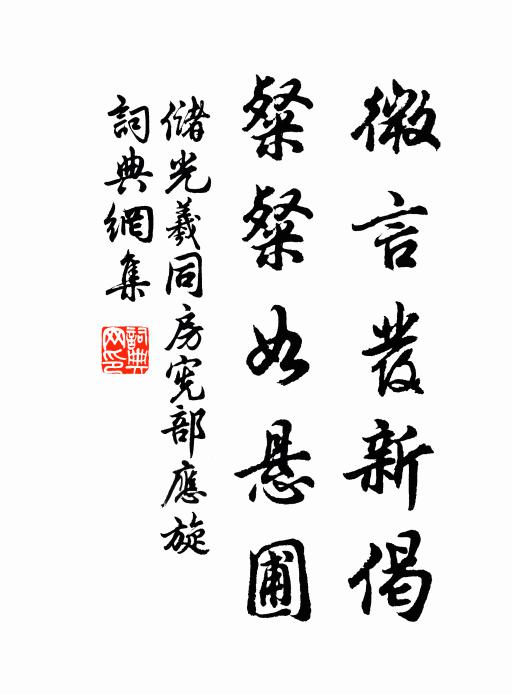 微言發新偈
粲粲如悬圃
儲光羲同房宪部應旋
詞典網集
詞典网印